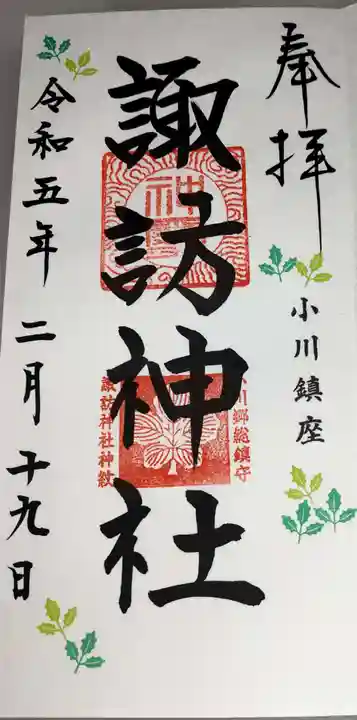 奉拝
小川鎮座
諏訪神社
小川郷総鎮守
諏訪神社神紋
令和五年二月十九日